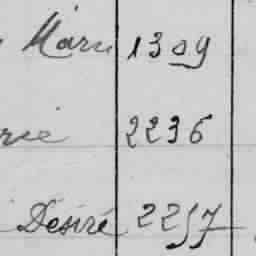 Marie 1309
rie 2236
Désiré 2257